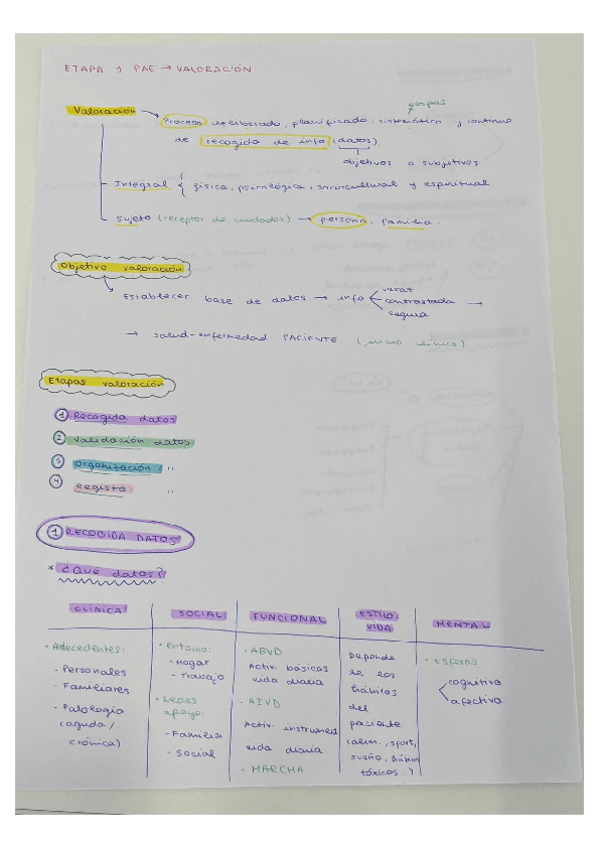 ETAPA 1 PAE → VALORACIÓN
etapas
Valoración → Proceso deliberado, planificado, sistemático y continuo
de recogida de info (datos)
objetivos o subjetivos
Integral { física, psicológica, sociocultural y espiritual
Sujeto (receptor de cuidados) → persona, familia.
Objetivo valoración
Establecer base de datos → info
veraz
contrastada →
segura
→ salud-enfermedad PACIENTE (juicio clínico)
Etapas valoración
1 Recogida datos
2 Validación datos
3 Organización ,,
4 Registro ,,
1 RECOGIDA DATOS
* ¿Qué datos?
CLÍNICA SOCIAL FUNCIONAL ESTILO VIDA MENTAL
· Antecedentes:
- Personales
- Familiares
- Patología
(aguda/
crónica)
· Entorno:
- Hogar
- Trabajo
· Redes
apoyo:
- Familia
- Social
· ABVD
Activ. básicas
vida diaria
· AIVD
Activ. instrument
vida diaria
· MARCHA
Depende
de los
hábitos
del
paciente
(alim., sport,
sueño, hábitos
tóxicos..)
· Esferas
cognitiva
afectiva